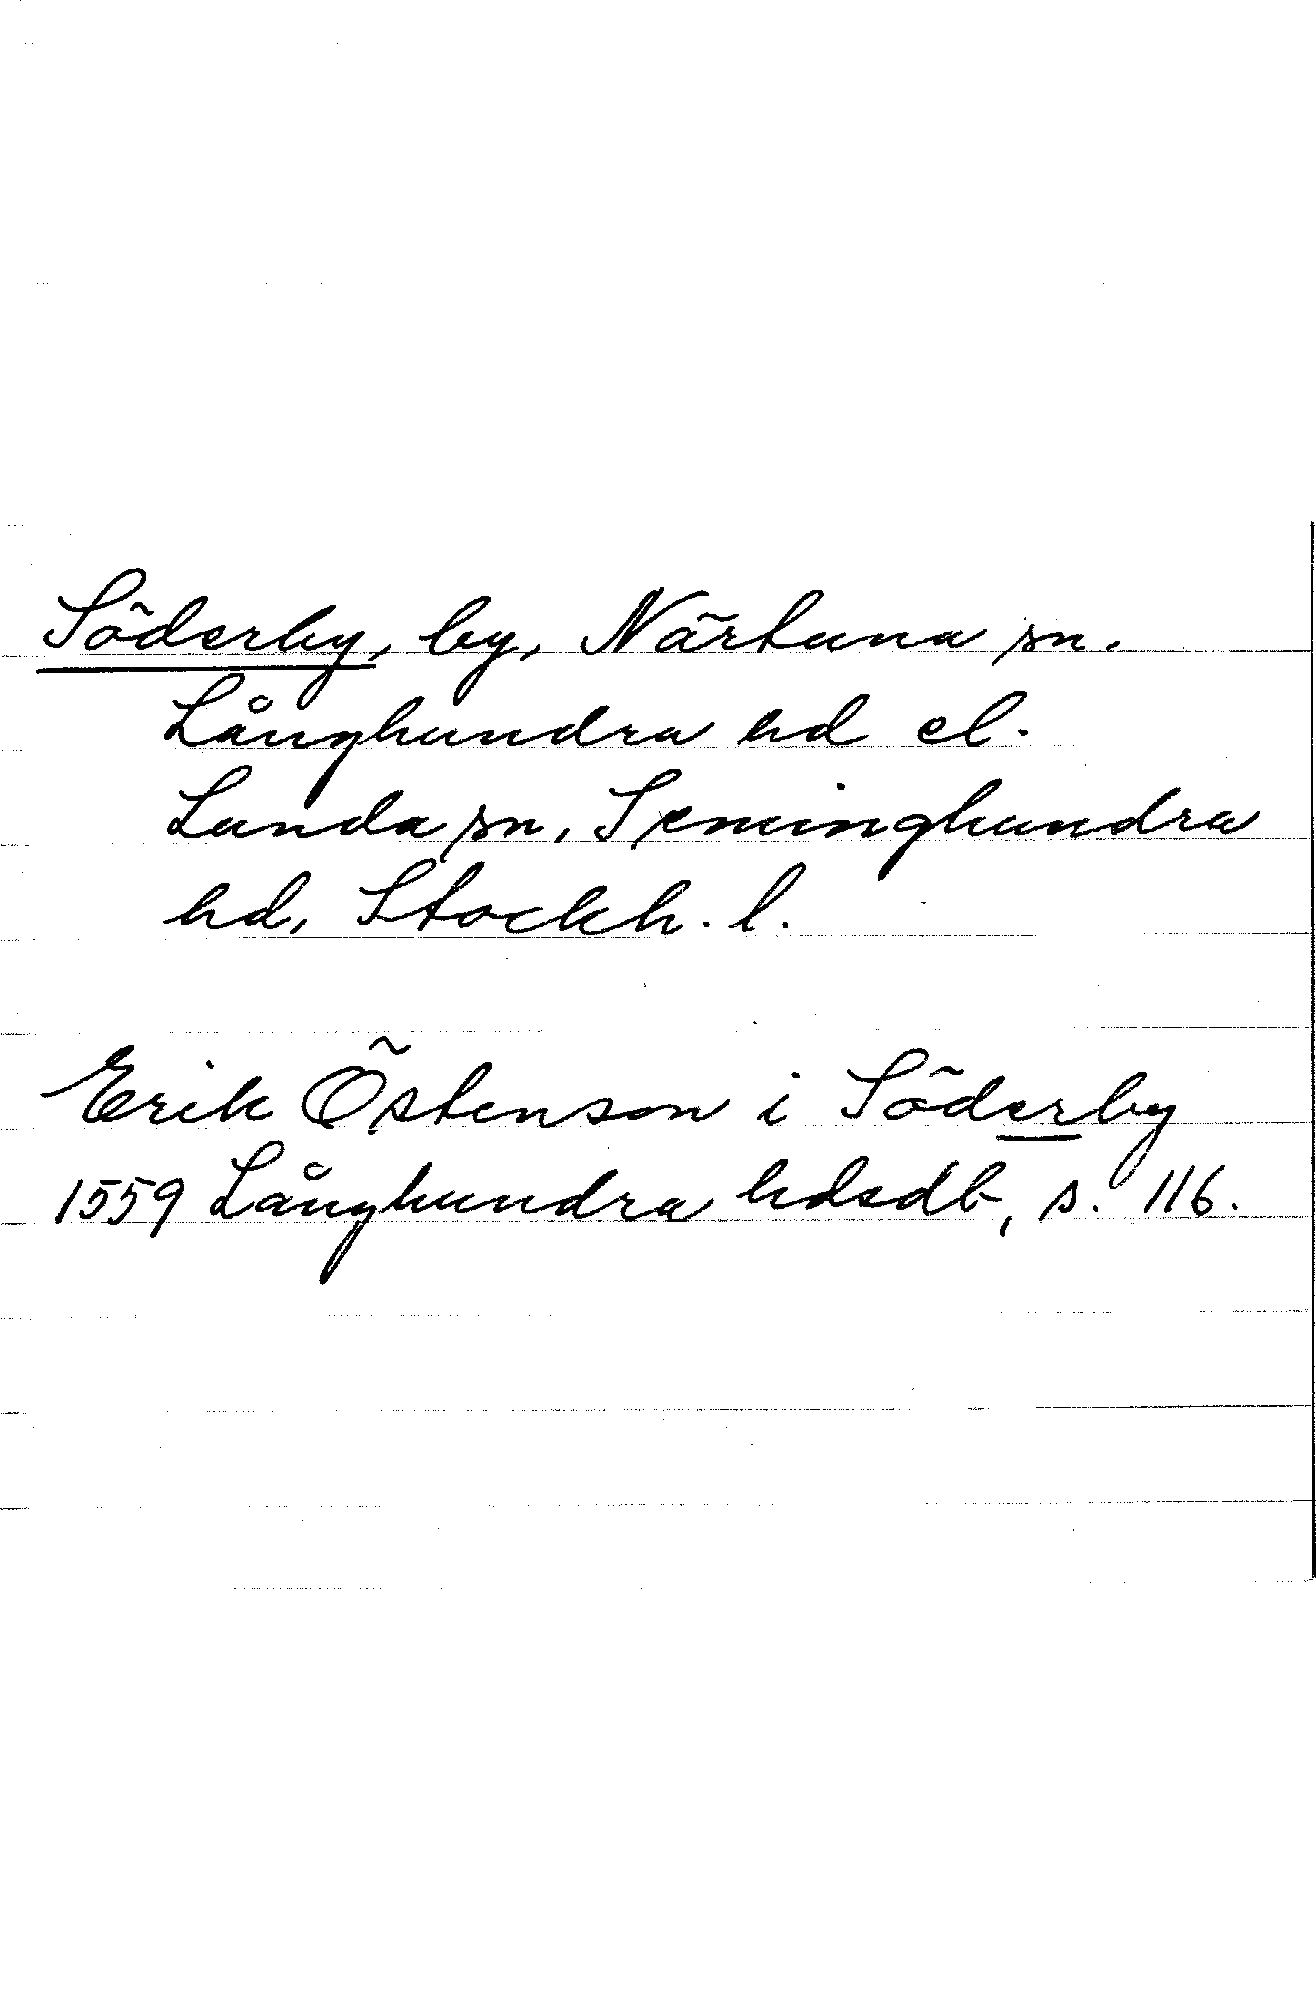 Söderby, by, Närtuna sn.
Långhundra hd el.
Lunda sn, Seminghundra
hd, Stockh. l.
Erik Östenson i Söderby
1559 Långhundra hdsdb, s. 116.